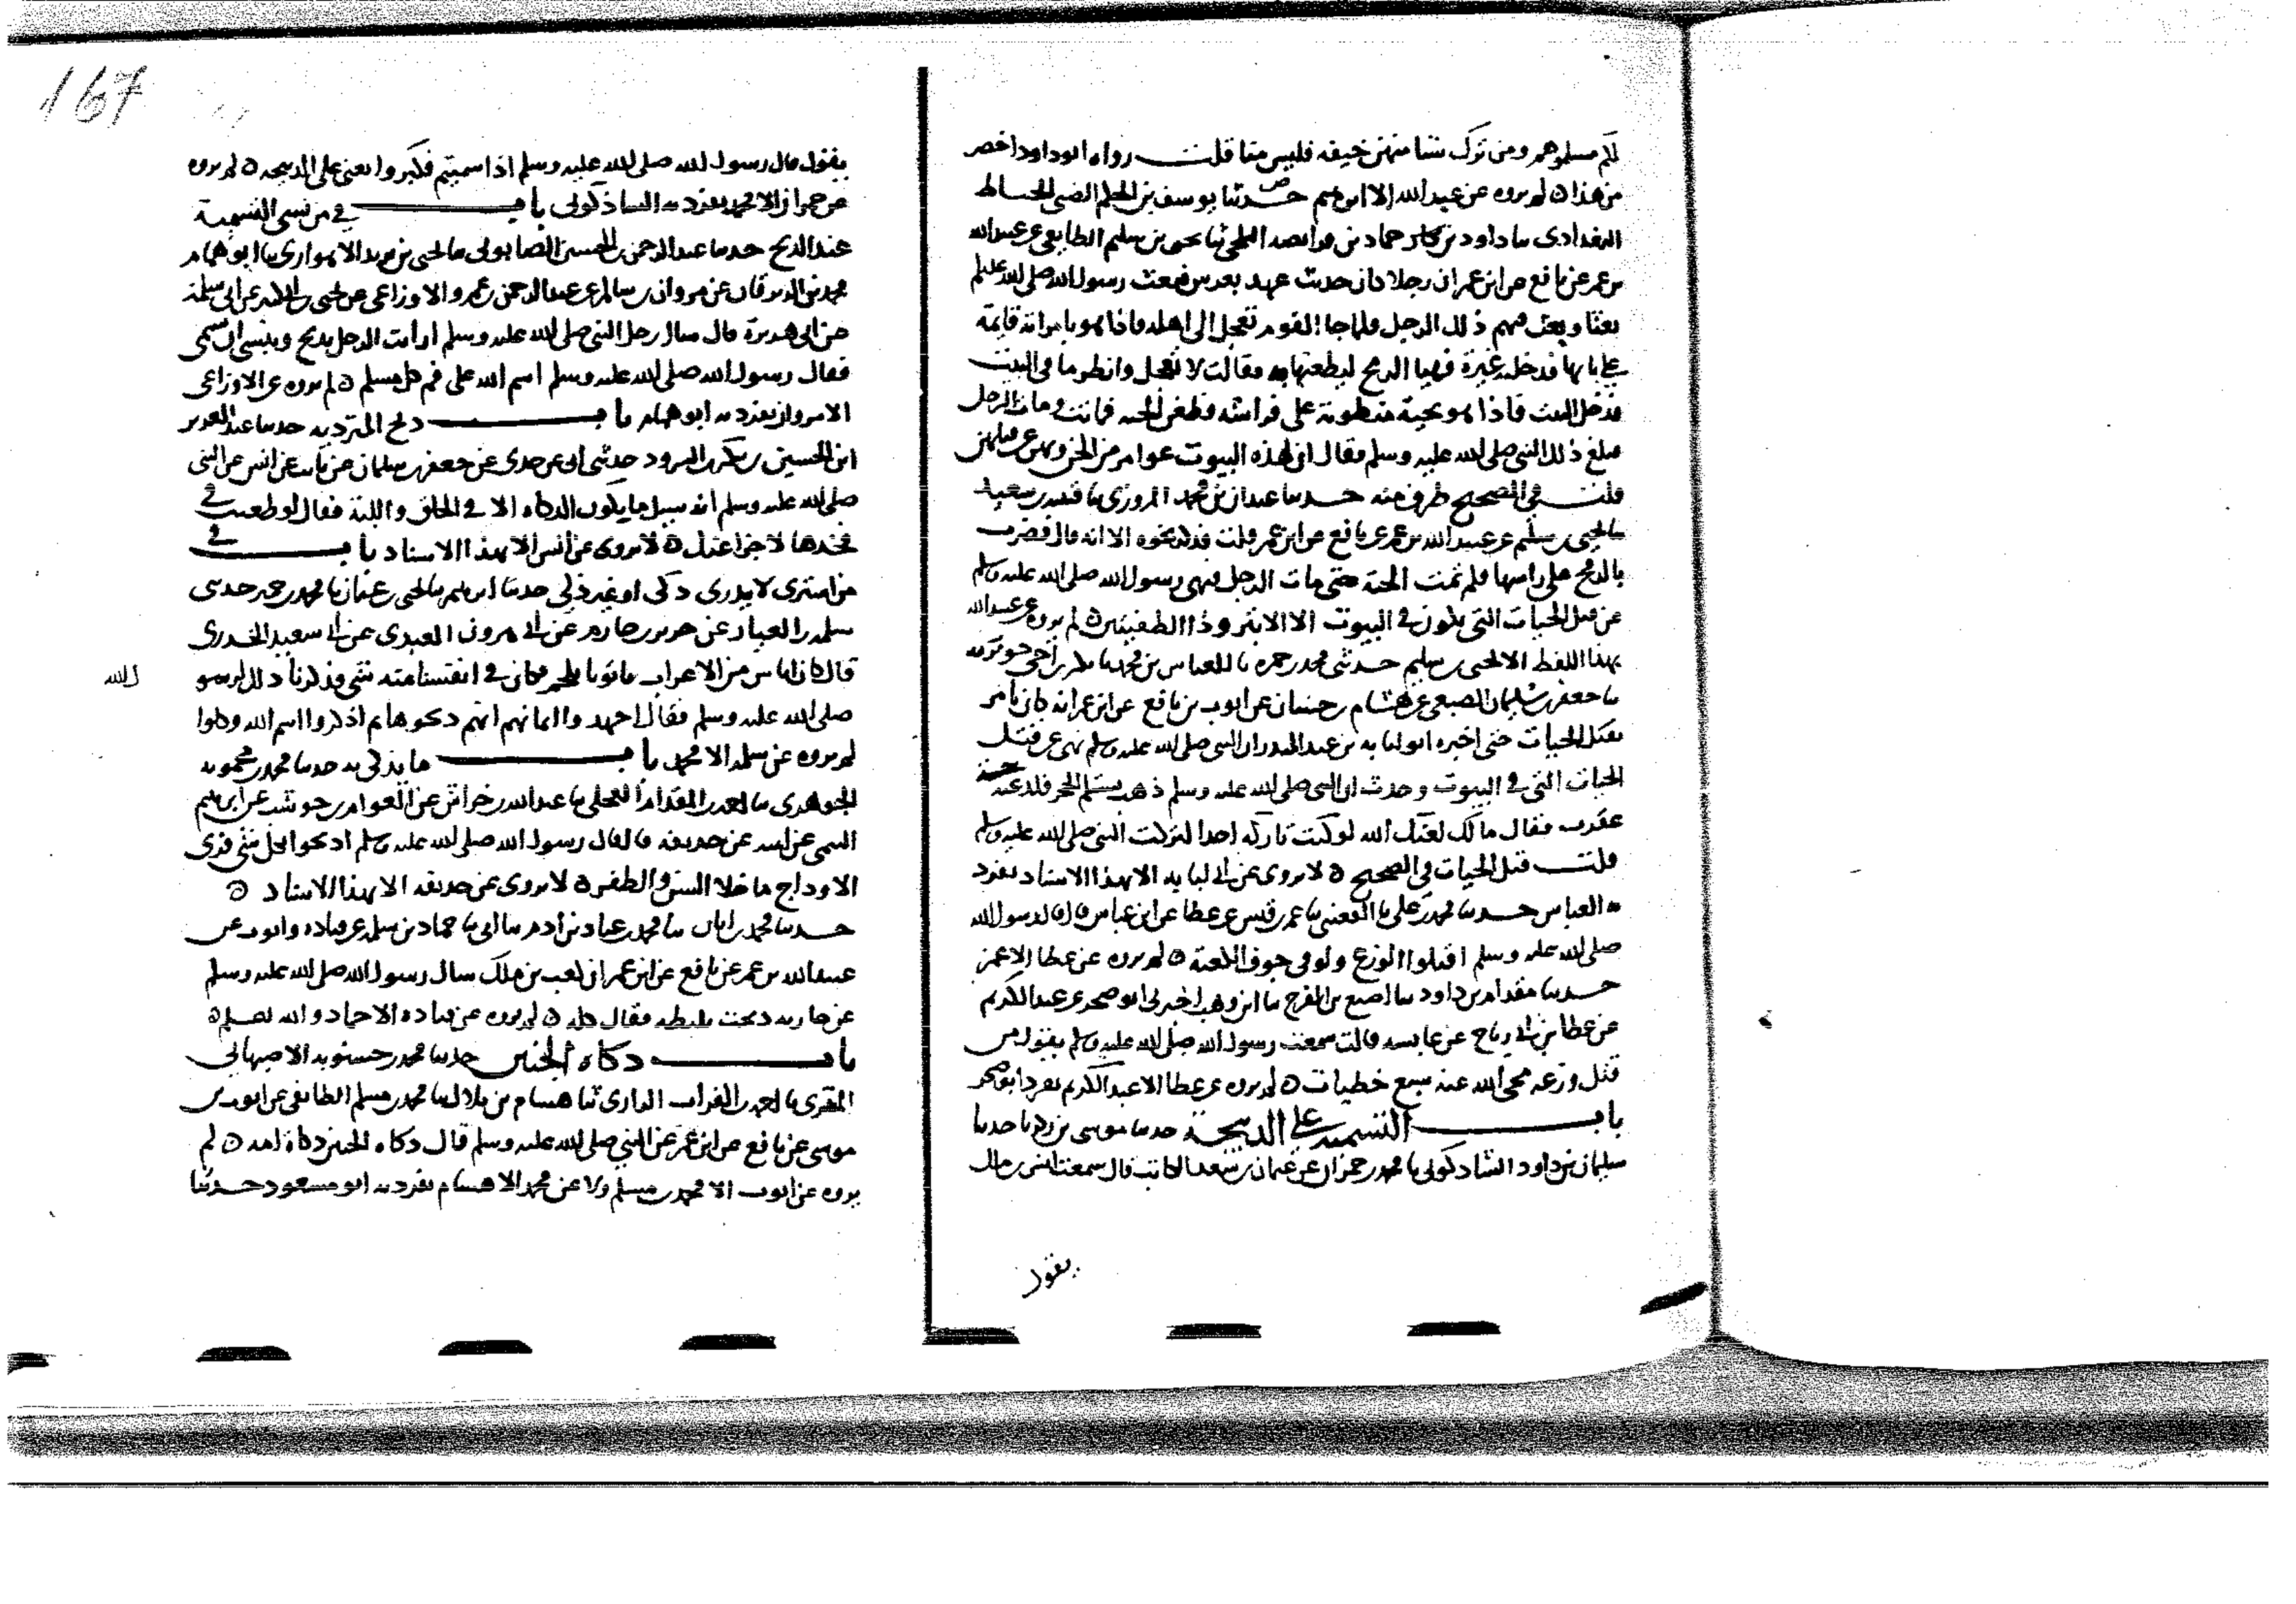 لم مسلموهم ومن ترك شيئا منهن خيفه فليس منا قلت رواه ابو داود اخصر
من هذا ۞ لم يروه عن عبد الله الا ابراهيم حدثنا يوسف بن الحكم الضبى الخياط
البغدادى ثنا داود بن حماد بن فرافصه البلخى ثنا يحيى بن سليم الطايفى عن عبيد الله
بن عمر عن نافع عن ابن عمر ان رجلا كان حديث عهد بعرس فبعث رسول الله صلى الله عليه وسلم
بعثا وبعث فيهم ذلك الرجل فلما جا القوم تعجل الى اهله فاذا هو بامراته قايمة
على بابها فدخله غيرة فهيا الرمح ليطعنها به فقالت لا تعجل وانظر ما فى البيت
فدخل البيت فاذا هو بحية منطوية على فراشه فطعن الحية فماتت ومات الرجل
فبلغ ذلك النبى صلى الله عليه وسلم فقال ان لهذه البيوت عوامر من الجن ونهى عن قتلهن
قلت فى الصحيح طرف منه حدثنا عبدان بن محمد المروزى ثنا قتيبه بن سعيد
ثنا يحيى بن سليم عن عبيد الله بن عمر عن نافع عن ابن عمر قلت فذكر نحوه الا انه قال فضرب
بالرمح على راسها فلم تمت الحية حتى مات الرجل فنهى رسول الله صلى الله عليه وسلم
عن قتل الحيات التى تكون فى البيوت الا الابتر وذا الطفيتين ۞ لم يروه عن عبيد الله
بهذا اللفظ الا يحيى بن سليم حدثنى محمد بن حمزه ثنا العباس بن محمد ثنا اخى جويريه
ثنا جعفر بن سليمان الضبعى عن هشام بن حسان عن ايوب عن نافع عن ابن عمر انه كان يامر
بقتل الحيات حتى اخبره ابو لبابه بن عبد المنذر ان النبى صلى الله عليه وسلم نهى عن قتل
الحيات التى فى البيوت وحدث ان النبى صلى الله عليه وسلم ذهب يستلم الحجر فلدغته
عقرب فقال مالك لعنك الله لو كنت تاركه احدا لتركت النبى صلى الله عليه وسلم
قلت قتل الحيات فى الصحيح ۞ لا يروى عن ابى لبابه الا بهذا الاسناد تفرد
به العباس حدثنا محمد بن على ثنا القعنبى ثنا عمر بن قيس عن عطا عن ابن عباس قال قال رسول الله
صلى الله عليه وسلم اقتلوا الوزغ ولو فى جوف الكعبة ۞ لم يروه عن عطا الا عمر
حدثنا مقدام بن داود ثنا اصبغ بن الفرج ثنا ابن وهب اخبرنى ابو صخر عن عبد الكريم
عن عطا بن ابى رباح عن عايشه قالت سمعت رسول الله صلى الله عليه وسلم يقول من
قتل وزغه محى الله عنه سبع خطيات ۞ لم يروه عن عطا الا عبد الكريم تفرد به ابو صخر
باب التسمية على الذبيحة حدثنا موسى بن زكريا حدثنا
سليمان بن داود الشاذكونى ثنا محمد بن حمران عن عثمان بن سعد الكاتب قال سمعت انس بن مالك
يقول
167
يقول قال رسول الله صلى الله عليه وسلم اذا سميتم فكبروا يعنى على الذبيحه ۞ لم يروه
عن حمران الا محمد تفرد به الشاذكونى باب فى من نسى التسمية
عند الذبح حدثنا عبد الرحمن بن الحسين الصابونى ثنا يحيى بن يزيد الاهوازى ثنا ابو همام
محمد بن الزبرقان عن مروان بن سالم عن عبد الرحمن بن عمرو الاوزاعى عن يحيى بن ابى كثير عن ابى سلمة
عن ابى هريرة قال سال رجل النبى صلى الله عليه وسلم ارايت الرجل يذبح وينسى ان يسمى
فقال رسول الله صلى الله عليه وسلم اسم الله على فم كل مسلم ۞ لم يروه عن الاوزاعى
الا مروان تفرد به ابو همام باب ذبح المتردية حدثنا عبد العزيز
ابن الحسين بن بكر بن الشرود حدثنى ابى عن جدى عن جعفر بن سليمان عن ثابت عن انس عن النبى
صلى الله عليه وسلم انه سيل ما يكون الذكاه الا فى الحلق واللبة فقال لو طعنت فى
فخذها لاجزا عنك ۞ لا يروى عن انس الا بهذا الاسناد باب فى
من اشترى لا يدرى ذكى او غير ذكى حدثنا ابراهيم ثنا يحيى بن عثمان ثنا محمد بن حمير حدثنى
سلمه بن العيار عن جرير بن حازم عن ابى هرون العبدى عن ابى سعيد الخدرى
قال كان اناس من الاعراب ياتونا بلحم وكان فى انفسنا منه شى فذكرنا ذلك لرسول الله
صلى الله عليه وسلم فقال اجهدوا ايمانهم انهم ذكوها ثم اذكروا اسم الله وكلوا
لم يروه عن سلمه الا محمد باب ما يذكى به حدثنا محمد بن محمويه
الجوهرى ثنا احمد بن المقدام العجلى ثنا عبد الله بن خراش عن العوام بن حوشب عن ابراهيم
التيمى عن ابيه عن حذيفه قال قال رسول الله صلى الله عليه وسلم اذبحوا بكل شى فرى
الاوداج ما خلا السن والظفر ۞ لا يروى عن حذيفه الا بهذا الاسناد ۞
حدثنا محمد بن ابان ثنا محمد بن عباد بن ادم ثنا ابى ثنا حماد بن سلمه عن قتاده وايوب عن
عبيد الله بن عمر عن نافع عن ابن عمر ان كعب بن ملك سال رسول الله صلى الله عليه وسلم
عن جاريه ذبحت بليطه فقال كله ۞ لم يروه عن قتاده الا حماد والله اعلم ۞
باب ذكاه الجنين حدثنا محمد بن حسنويه الاصبهانى
المقرى ثنا احمد بن الفرات الرازى ثنا هشام بن بلال ثنا محمد بن مسلم الطائفى عن ايوب بن
موسى عن نافع عن ابن عمر عن النبى صلى الله عليه وسلم قال ذكاه الجنين ذكاة امه ۞ لم
يروه عن ايوب الا محمد بن مسلم ولا عن محمد الا هشام تفرد به ابو مسعود حدثنا